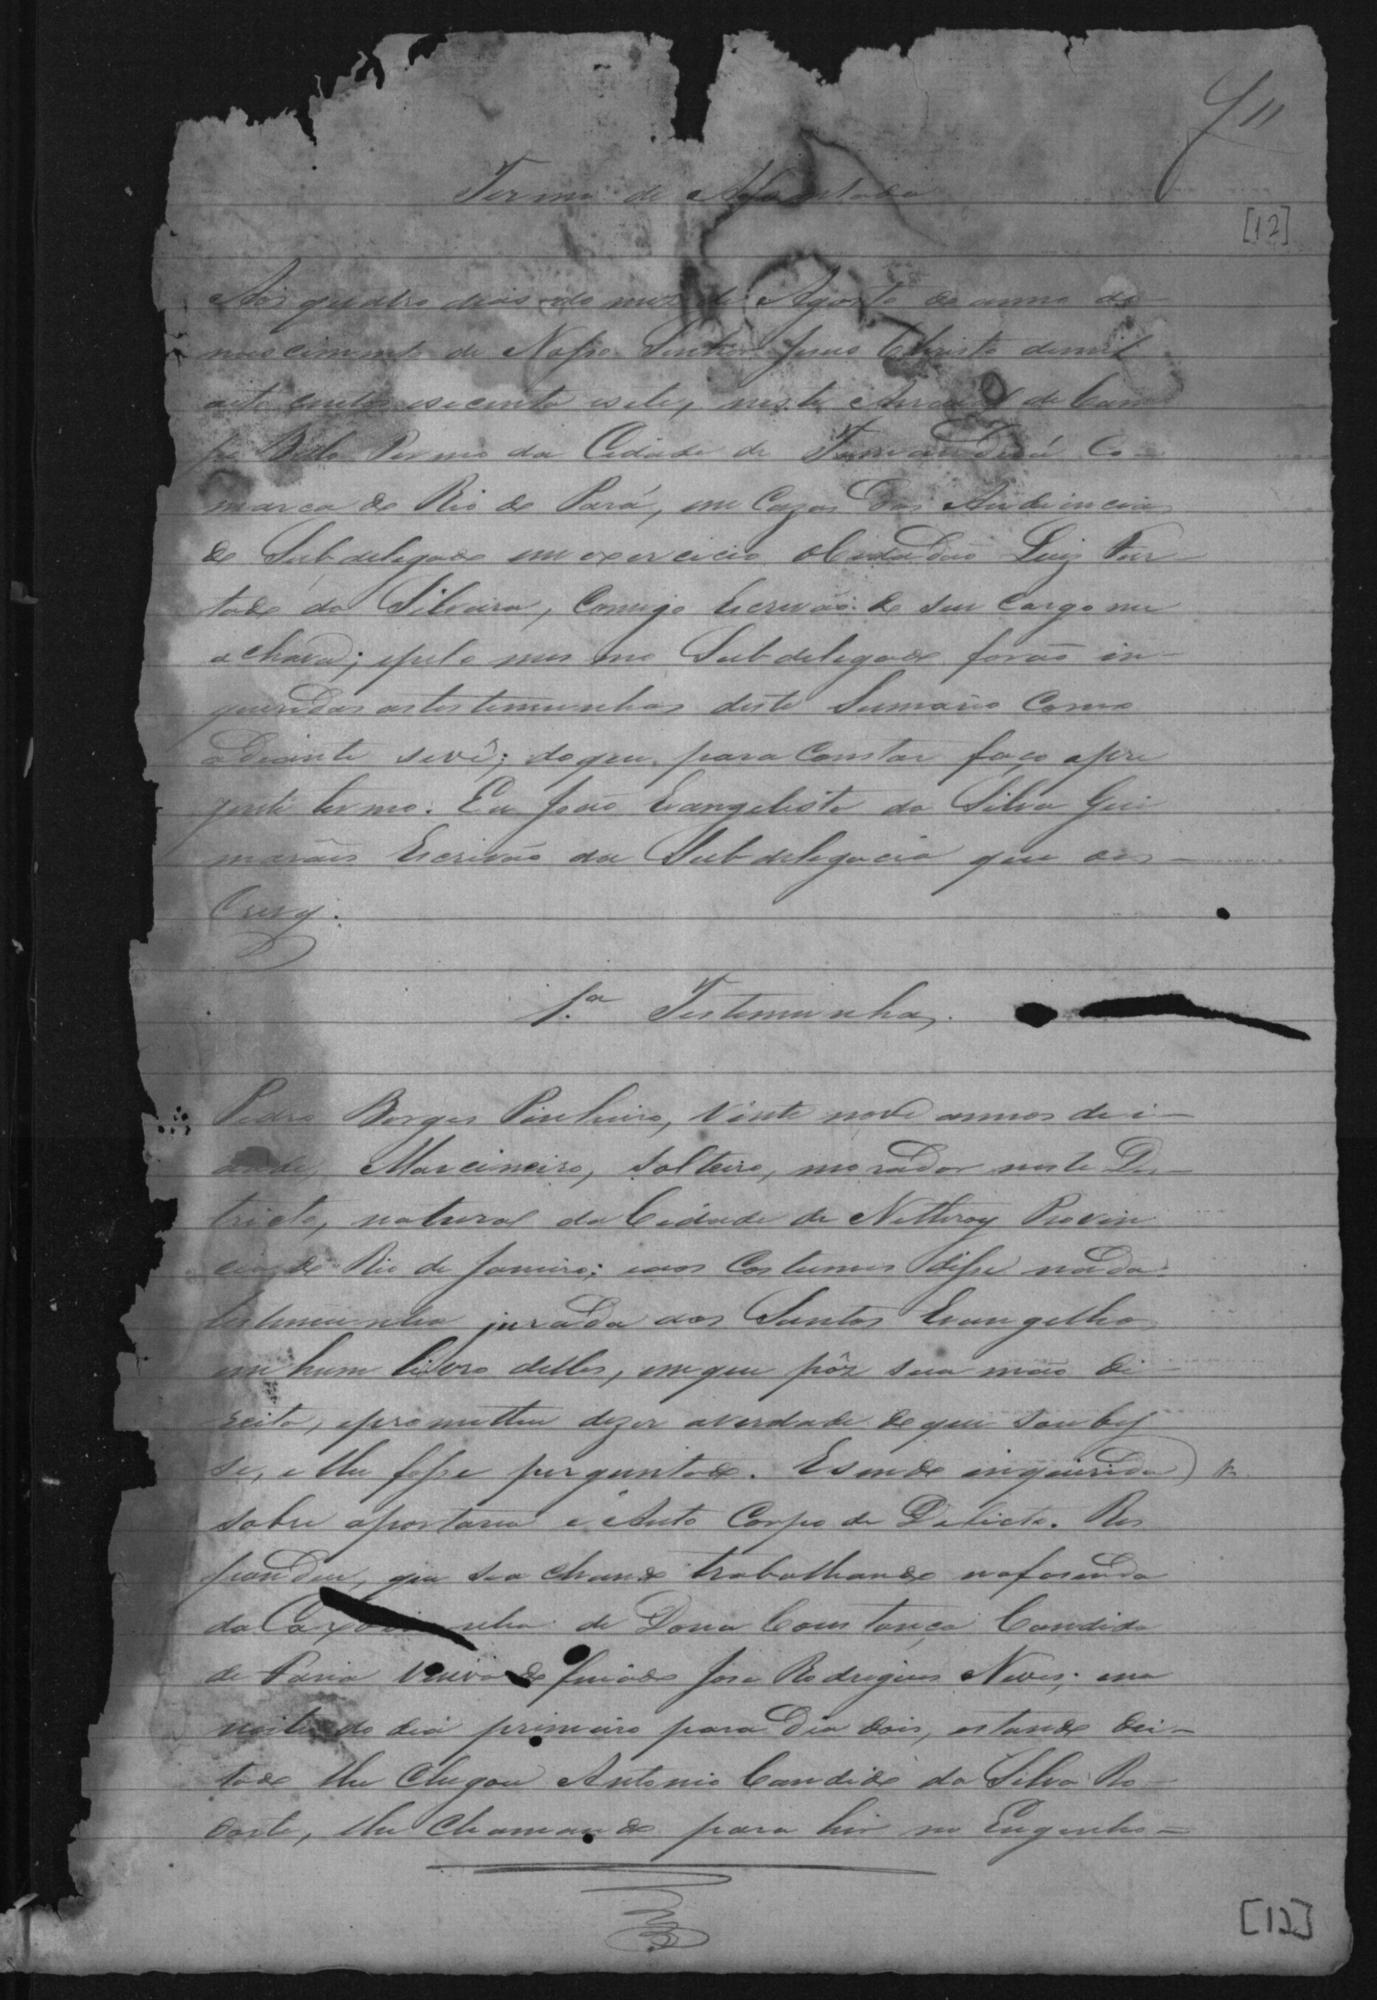 11
Termo de Assentada
[12]
Aos quatro dias do mez de Agosto do anno do
nascimento de Nosso Senhor Jesus Christo de mil
oito centos secenta e sete, neste Arraial de Cam
po Bello Termo da Cidade de Tamanduá Co-
marca do Rio de Pará, em Cazas das Audiencias
do Subdelegado em exercicio o Cidadão Luiz Fur-
tado da Silveira, Comigo Escrivão de seu Cargo me
achava; e pelo mesmo Subdelegado forão in-
queridas as testemunhas deste Sumario Como
adiante se vê; do que para Constar faço o pre
zente termo. Eu João Evangelista da Silva Gui
marães Escrivão da Subdelegacia que o es-
Crevy.
1.ª Testemunha,
Pedro Borges Pinheiro, Vinte nove annos de i-
dade, Marcineiro, Solteiro, morador neste Des-
tricto, natural da Cidade de Nitheroy Provin
cia do Rio de Janeiro; e aos Costumes disse nada.
testemunha jurada aos Santos Evangelhos
em hum livro delles, em que pôz sua mão di-
reita, e prometteu dizer a verdade do que soubes
se, e lhe fosse perguntado. E sendo inquerida
sobre a portaria e Auto Corpo de Delicto. Res
pondeu, que se achando trabalhando na fasenda
da Caxoeirinha de Dona Constança Candida
de Faria Viuva do finado Jose Rodrigues Neves; e na
noite do dia primeiro para dia dois, estando dei-
tado lhe Chegou Antonio Candido da Silva Ro-
lhe Chamando para hir no Engenho-
[12]